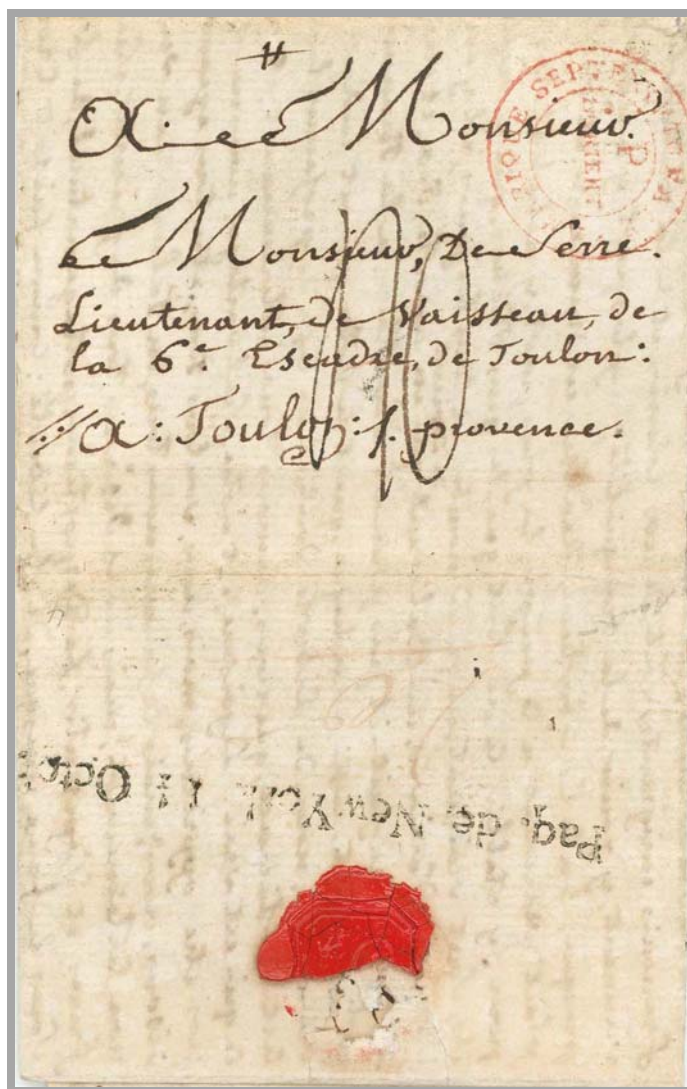 A Monsieur.
Monsieur, De Serre.
Lieutenant, de Vaisseau, de
la 6e. Escadre, de Toulon:
A: Toulon: /. provence.
Paq. de New York 11 Octo